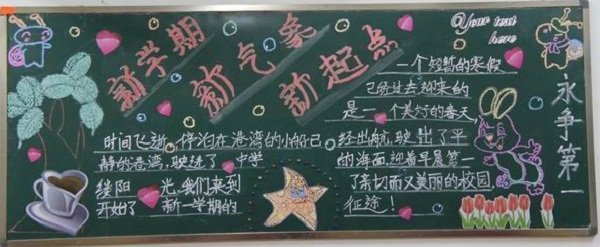 新学期
新气象
新起点
@Your text
here
一个短暂的寒假
已经过去迎来的
是一个美好的春天,
时间飞逝,停泊在港湾的小船已经出航,驶出了平
静的港湾,驶进了 中学的海面,迎着早晨第一
缕阳 光,我们来到了亲切而又美丽的校园
开始了 新一学期的征途!
永争第一